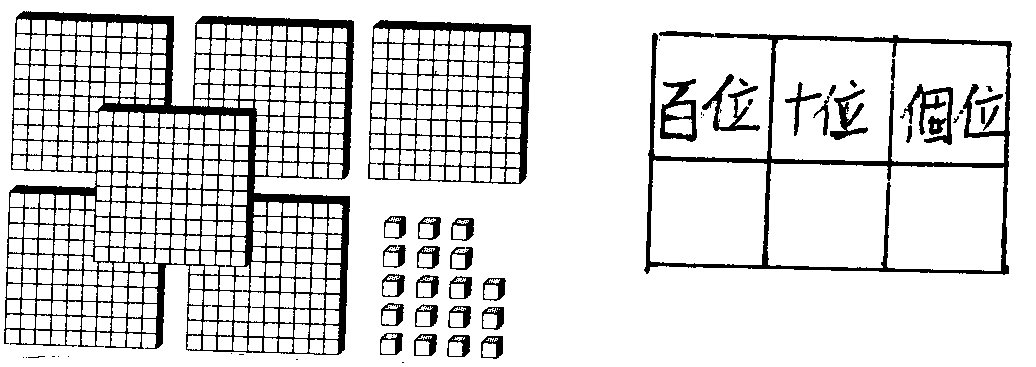 百位 十位 個位